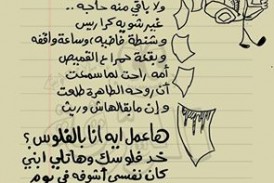 ولا باقي منه حاجه ..
غير شوية كراريس
وشنطة فاضيه ، وساعة واقفه
وبقعة حمرا ع القميص
أمه راحت لما سمعت
أن روحه الطاهرة طلعت
وإن مابقالهاش وريث
هاعمل ايه أنا بالفلوس ؟
خد فلوسك وهاتلي ابني
كان نفسي أشوفه في يوم